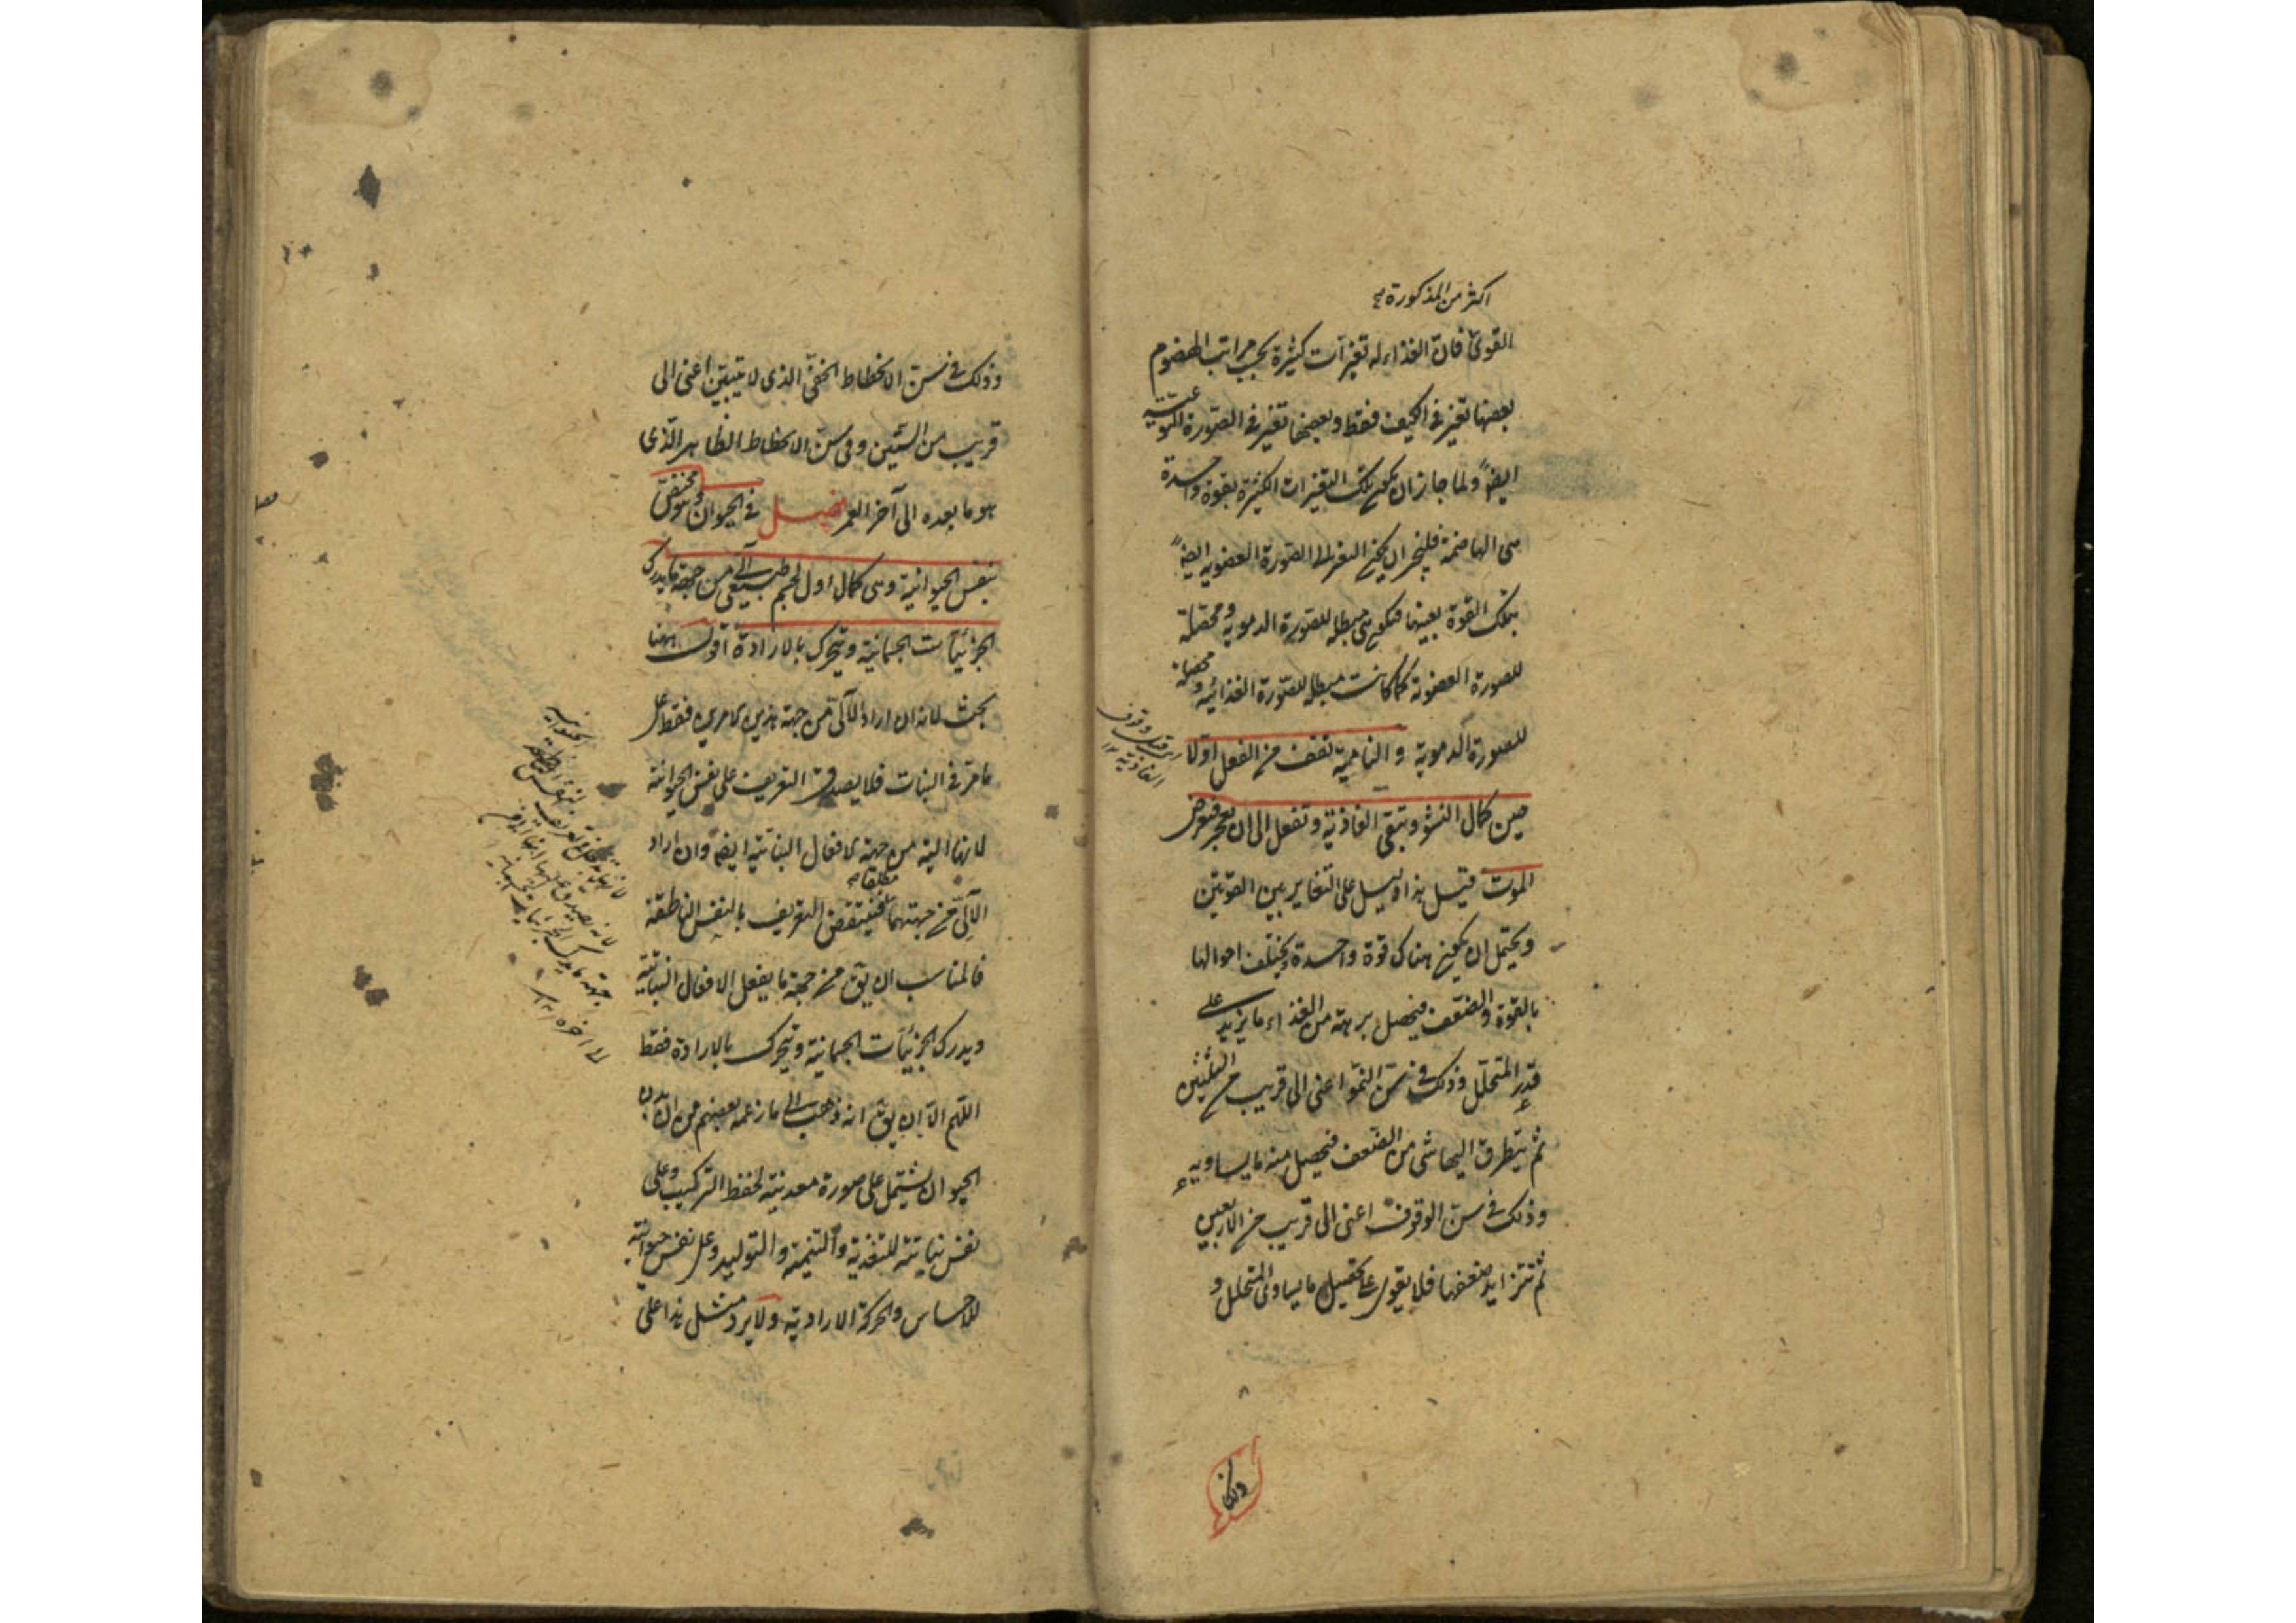 اكثر من المذكورة صح
القوى فان الغذاء له تغيرات كثيرة بحسب مراتب الهضوم
بعضها تغير فى الكيف فقط وبعضها تغير فى الصورة النوعية
ايضاً ولما جاز ان يكون تلك التغيرات الكثيرة بقوة واحدة
هى الهاضمة فليجز ان يكون التغير الى الصورة العضوية ايضاً
بتلك القوة بعينها فتكون هى مبطلة للصورة الدموية ومحصلة
للصورة العضوية كما كانت مبطلة للصورة الغذائية ومحصلة
للصورة الدموية والنامية تقف من الفعل اولا
حين كمال النشو وتبقى الغاذية وتفعل الى ان تعجز فيعرض
الموت قيل هذا دليل على التغاير بين القوتين
ويحتمل ان يكون هناك قوة واحدة ويختلف احوالها
بالقوة والضعف فيحصل برهة من الغذاء ما يزيد على
قدر المتحلل وذلك فى سن النمو اعنى الى قريب من الثلثين
ثم يتطرق اليها شى من الضعف فيحصل منه ما يساويه
وذلك فى سن الوقوف اعنى الى قريب من الاربعين
ثم تتزايد ضعفها فلا يقوى على تحصيل ما يساوى المتحلل و
وذلك
قبل وقوف
الغاذية ١٢
وذلك فى سن الانحطاط الخفى الذى لا يتبين اعنى الى
قريب من الستين وفى سن الانحطاط الظاهر الذى
هو ما بعده الى آخر العمر فصل فى الحيوان وهو مختص
بنفس الحيوانية وهى كمال اول لجسم طبيعى آلى من جهة ما يدرك
الجزئيات الجسمانية ويتحرك بالارادة اقول ههنا
بحث لانه ان اراد الآلى من جهة هذين الامرين فقط على
ما مر فى النبات فلا يصدق التعريف على نفس الحيوانية
لانها آلية من جهة الافعال النباتية ايضاً وان اراد
الآلى من جهتهما مطلقا فينتقض التعريف بالنفس الناطقة
فالمناسب ان يق من جهة ما يفعل الافعال النباتية
ويدرك الجزئيات الجسمانية ويتحرك بالارادة فقط
اللهم الا ان يق انه ذهب الى ما زعمه بعضهم من ان بدن
الحيوان يشتمل على صورة معدنية لحفظ التركيب وعلى
نفس نباتية للتغذية والتنمية والتوليد وعلى نفس حيوانية
للاحساس والحركة الارادية ولا يرد مثل هذا على
جهة ما يدرك الجزئيات الجسمانية
الى اخره ١٢